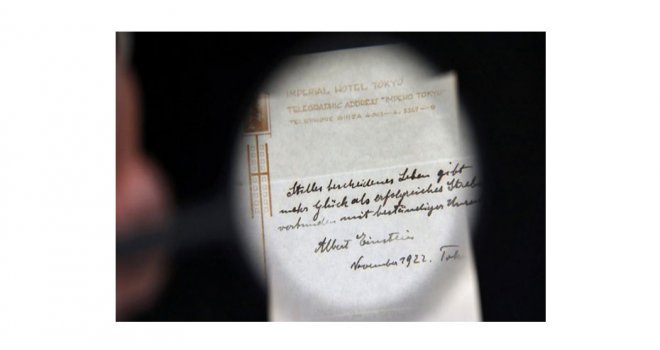 IMPERIAL HOTEL TOKYO
TELEGRAPHIC ADDRESS "IMPEHO TOKYO"
TELEPHONE GINZA
Stilles bescheidenes Leben gibt
mehr Glück als erfolgreiches Streben
verbunden mit beständiger Unruhe
Albert Einstein
November 1922. Tok